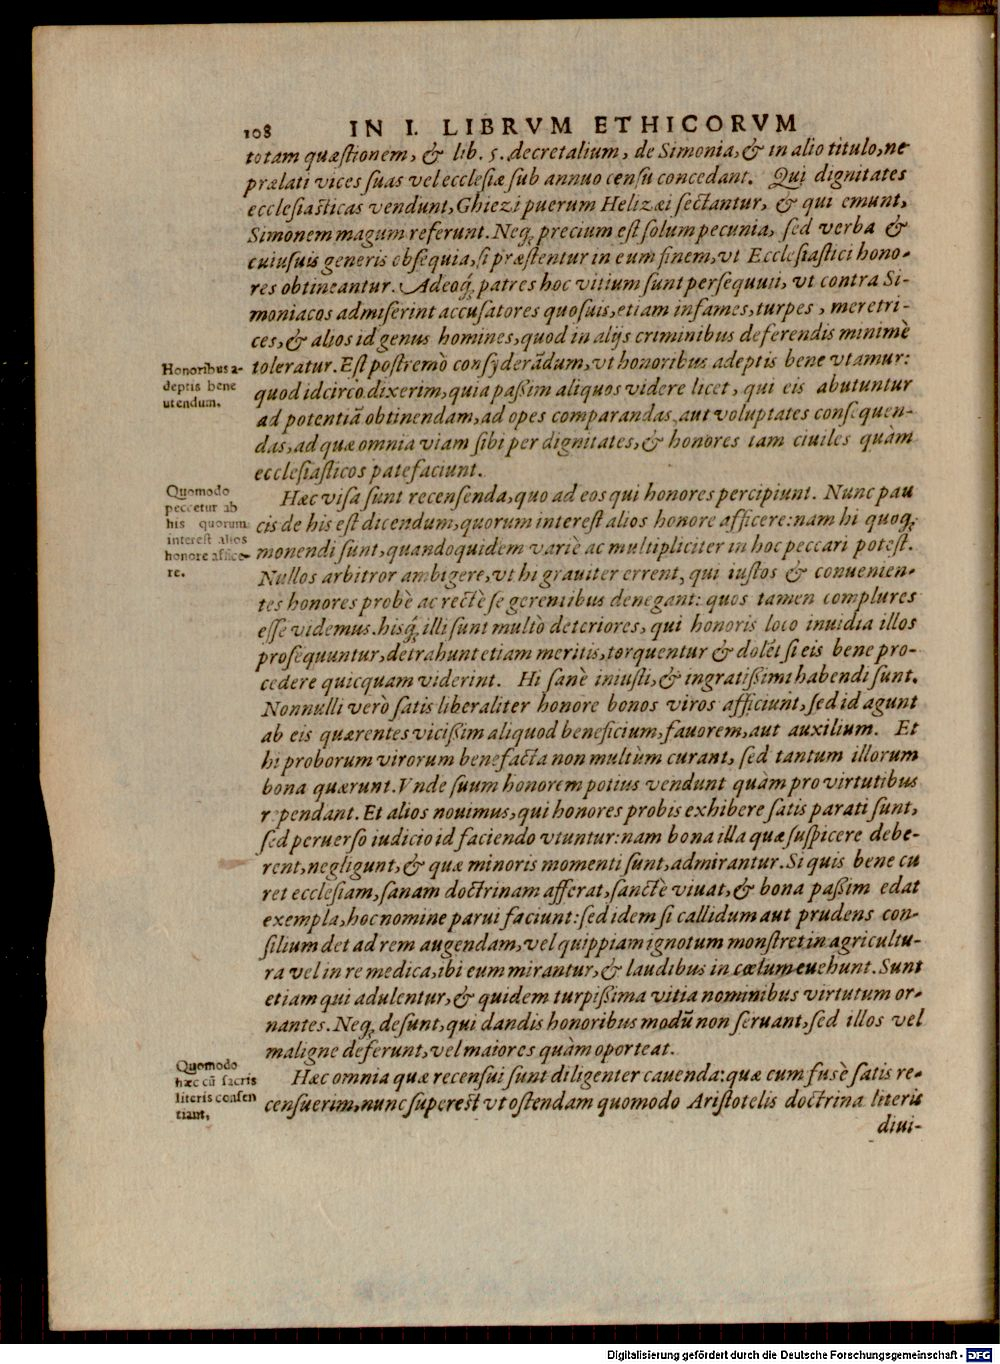 108 IN I. LIBRVM ETHICORVM
totam quæstionem, & lib. 5. decretalium, de Simonia, & in alio titulo, ne
prælati vices suas vel ecclesiæ sub annuo censu concedant. Qui dignitates
ecclesiasticas vendunt, Ghiezi puerum Helizæi sectantur, & qui emunt,
Simonem magum referunt. Neq; precium est solum pecunia, sed verba &
cuiusuis generis obsequia, si præstentur in eum finem, vt Ecclesiastici hono-
res obtineantur. Adeoq́; patres hoc vitium sunt persequuti, vt contra Si-
moniacos admiserint accusatores quosuis, etiam infames, turpes, meretri-
ces, & alios id genus homines, quod in alijs criminibus deferendis minimè
Honoribus a-
deptis bene
utendum.
toleratur. Est postremò consyderādum, vt honoribus adeptis bene vtamur:
quod idcircò dixerim, quia paßim aliquos videre licet, qui eis abutuntur
ad potentiā obtinendam, ad opes comparandas, aut voluptates consequen-
das, ad quæ omnia viam sibi per dignitates, & honores tam ciuiles quàm
ecclesiasticos patefaciunt.
Quomodo
peccetur ab
his quorum
interest alios
honore affice-
re.
Hæc visa sunt recensenda, quo ad eos qui honores percipiunt. Nunc pau
cis de his est dicendum, quorum interest alios honore afficere: nam hi quoq;
monendi sunt, quandoquidem variè ac multipliciter in hoc peccari potest.
Nullos arbitror ambigere, vt hi grauiter errent, qui iustos & conuenien-
tes honores probè ac rectè se gerentibus denegant: quos tamen complures
esse videmus. hisq́; illi sunt multò deteriores, qui honoris loco inuidia illos
prosequuntur, detrahunt etiam meritis, torquentur & dolēt si eis bene pro-
cedere quicquam viderint. Hi sanè iniusti, & ingratißimi habendi sunt.
Nonnulli verò satis liberaliter honore bonos viros afficiunt, sed id agunt
ab eis quærentes vicißim aliquod beneficium, fauorem, aut auxilium. Et
hi proborum virorum benefacta non multùm curant, sed tantum illorum
bona quærunt. Vnde suum honorem potius vendunt quàm pro virtutibus
rependant. Et alios nouimus, qui honores probis exhibere satis parati sunt,
sed peruerso iudicio id faciendo vtuntur: nam bona illa quæ suspicere debe-
rent, negligunt, & quæ minoris momenti sunt, admirantur. Si quis bene cu
ret ecclesiam, sanam doctrinam afferat, sanctè viuat, & bona paßim edat
exempla, hoc nomine parui faciunt: sed idem si callidum aut prudens con-
silium det ad rem augendam, vel quippiam ignotum monstret in agricultu-
ra vel in re medica, ibi eum mirantur, & laudibus in cœlum euehunt. Sunt
etiam qui adulentur, & quidem turpißima vitia nominibus virtutum or-
nantes. Neq; desunt, qui dandis honoribus modū non seruant, sed illos vel
maligne deferunt, vel maiores quàm oporteat.
Quomodo
hæc cū sacris
literis consen
tiant.
Hæc omnia quæ recensui sunt diligenter cauenda: quæ cum fusè satis re-
censuerim, nunc superest vt ostendam quomodo Aristotelis doctrina literis
diui-
Digitalisierung gefördert durch die Deutsche Forschungsgemeinschaft - DFG